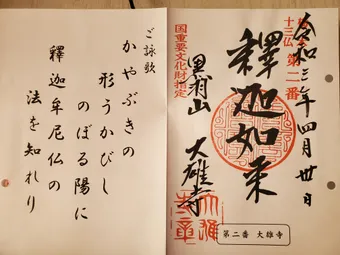 令和三年四月
十三仏 第二番
釋迦如来
大雄寺
黒羽山
国重要文化財指定
第二番 大雄寺
ご詠歌
かやぶきの
形うかびし
のぼる陽に
釋迦牟尼仏の
法を知れり